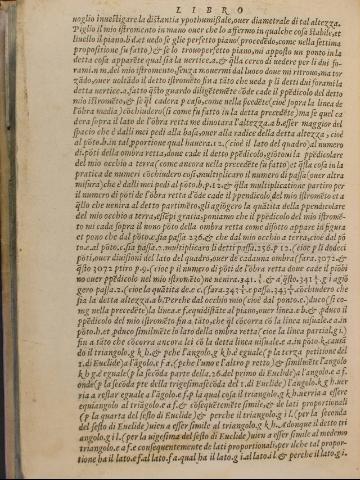 LIBRO
uoglio inuestigare la distantia ypothumißale, ouer diametrale di tal altezza.
Piglio il mio istromento in mano ouer che lo affermo in qualche cosa stabile, et
liuello il piano.b.d.et uedo se glie perfetto piano (procedēdo, come nella settima
propositione fu fatto) & se lo trouo perfetto piano, mi apposto un ponto in la
detta cosa apparēte qual sia la uertice.a. & q̃lla cerco di uedere per li dui fo-
rami.n.m.del mio istromento, senza mouermi dal luoco doue mi ritrouo, ma tor
zādo, ouer uoltādo il detto istromēto fin a tāto che ueda p li detti dui forami la
detta uertice.a. fatto q̃sto guardo diligētemēte cōde cade il ppēdicolo del detto
mio istromēto, & se q̃l cadera p caso, come nella p̄cedēte (cioè sopra la linea de
l'ōbra media) cōchiudero (si come fu fatto in la detta precedēte) ma se quel ca
dera sopra il lato de l'ōbra retta me dinotara l'altezza.a.b.esser maggior del
spacio che è dalli mei pedi alla basa, ouer alla radice della detta altezza, cioè
al pōto.b. in tal pportione qual hauera.12. (cioè il lato del quadro) al numero
di pōti della ombra retta, doue cade il detto ppēdicolo, giōtoui la ppēdicolare
del mio occhio a terra (come ancora nella precedēte fu fatto) et q̃lla cosa in la
pratica de numeri cōchiudero cosi, multiplicaro il numero di passa (ouer altra
misura) che è dalli mei pedi al pōto.b.p.12. & q̃lla multiplicatione partiro per
il numero di pōti de l'ōbra retta doue cade il ppendicolo, del mio istromēto et a
q̃llo che uenira al detto partimēto, gli agiōgero la quātita della ppendiculare
del mio occhio a terra, essēpi gratia, poniamo che il ppēdicolo del mio istromē-
to mi cada sopra il nono pōto della ombra retta come disotto appare in figura
et pono che dal pōto.o. sia passa 256, & che dal mio occhio a terra, cioè dal pō
to.e. al pōto.c. sia passa.2. multiplicaro li detti passa.256.p 12. (cioè p li dodeci
pōti, ouer diuisioni del lato del quadro, ouer de cadauna ombra) fara.3072. &
q̃sto 3072 ptiro p.9. (cioè p il numero di pōti de l'ōbra retta doue cade il piōbi
no ouer ppēdicolo del mio istromēto) me uenira.341. ⅓ & a q̃sto.341 ⅓ gi agiō
gero passa.2. (cioè la quātita de.e.c.) fara.343 ⅓ & passa.343 ⅓ cōchiudero che
sia la detta altezza.a.b. Perche dal occhio mio (cioè dal ponto.e.) duco (si co-
mo nella precedēte) la linea.e.f. equidistāte al piano, ouer linea.c.b. & pduco il
ppēdicolo del mio istromēto fin a, tāto, che q̃l cōcorra cō la linea uisuale.e.a. in
pōto.h. et pduco similmēte lo lato della ombra retta (cioè la linea partial.g.i.)
fin a tāto che cōcorra ancora lei cō la detta linea uisuale.e.a. in pōto.k. causā
do il triangolo.g k h, & pche l'angolo.g k h. è eguale (p la terza petitione del
1. di Euclide) a l'āgolo.e f a. (pche l'uno e l'altro p retto) & similmēte l'angolo
k h g. è eguale (p la secōda parte della.26. del primo di Euclide) a l'angolo.e a f.
onde (p la secōda pte della trigesimasecōda del 1. di Euclide) l'angolo.k g h. uer
ria a restar eguale a l'āgolo.e f. p la qual cosa il triangol g k h uerria a essere
equiangolo al triāgolo.e a f. & cōsequētemēte similo, & de lati proportionali
(p la quarta del sesto di Euclide) & perche il triangolo.g i l. (per la seconda
del sesto di Euclide) uien a esser simile al triangolo.g k h. Adonque il detto tri
angolo.g i l. (per la uigesima del sesto di Euclide) uien a esser simile al medemo
triangolo.e a f. e consequentemente de lati proportionali, per ilche tal propor-
tione ha il lato.e f. al lato.f a. qual ha il lato.g i. al lato.i l & perche il lato.g i.